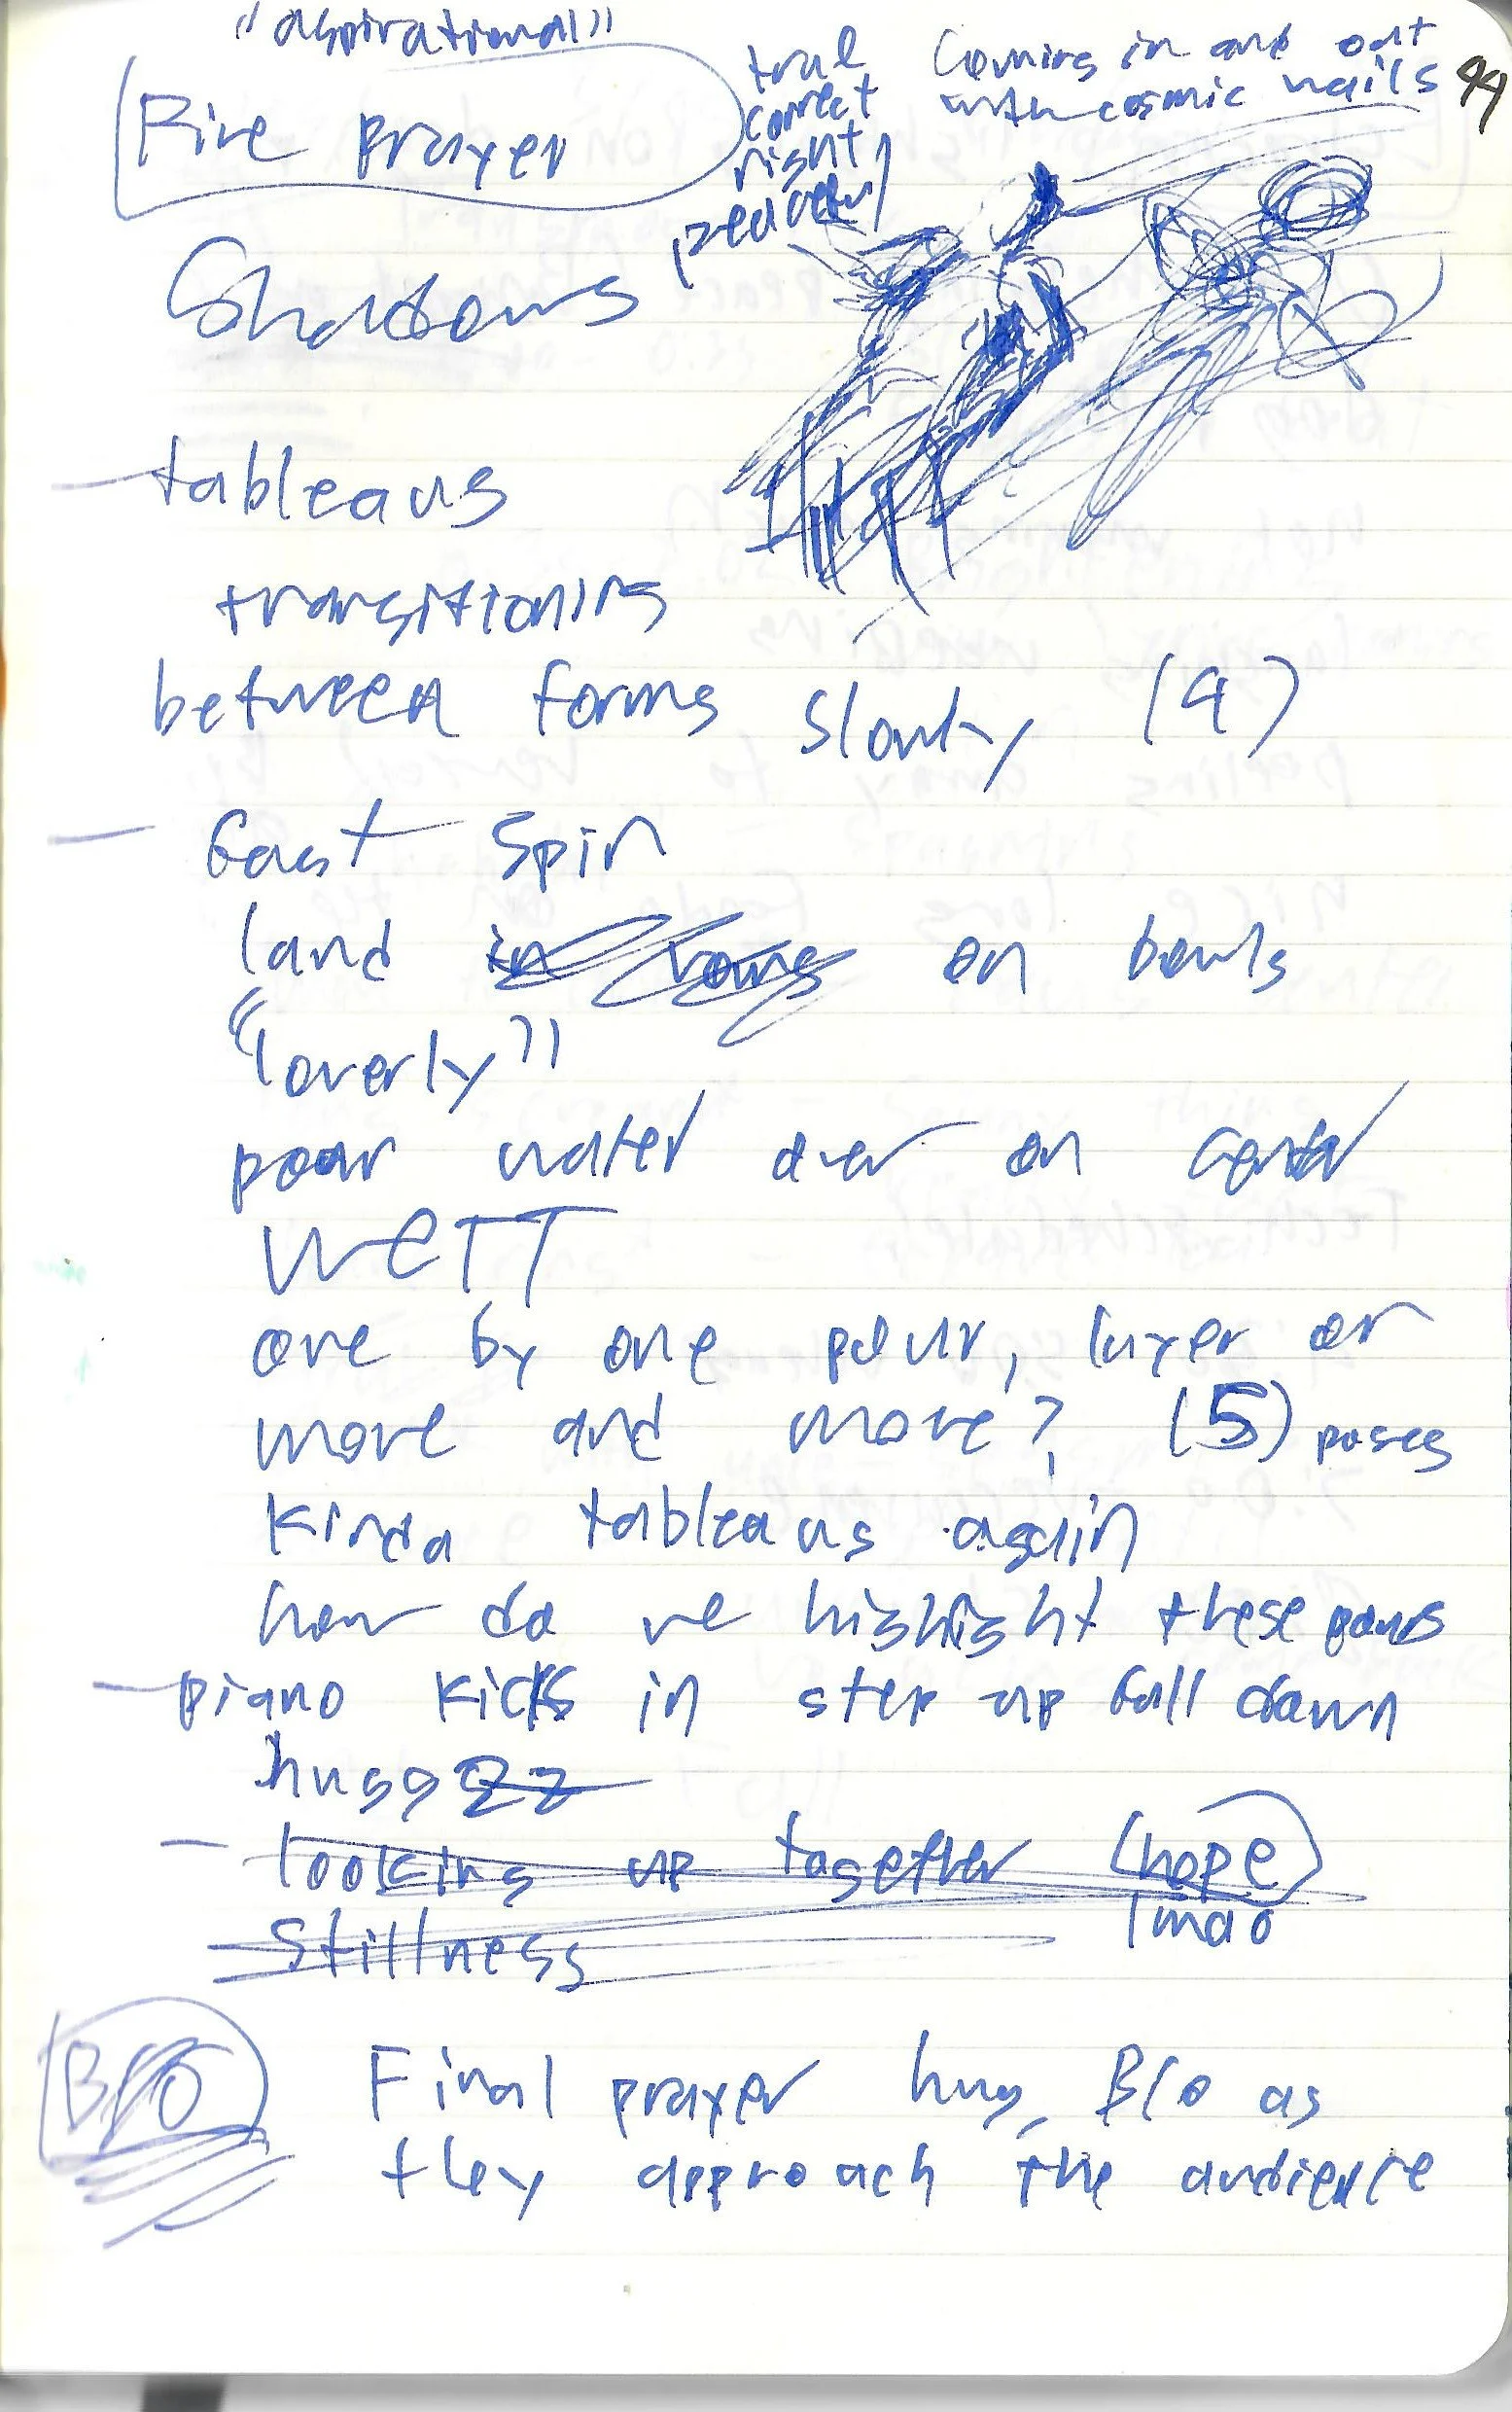 "aspirational"
Fire prayer
true
correct
right
peaceful
Coming in and out
with cosmic nails
99
Shadows
- tableaus
transitioning
between forms slowly (4)
- fast spin
land in rows on bowls
"loverly"
pour water over on center
WETT
one by one pour, layer or
move and move? (5) poses
kinda tableaus again
how do we highlight these
- piano kicks in step up fall down
huggzz
- looking up together (hope)
lmao
stillness
B/O
Final prayer hug, B/O as
they approach the audience